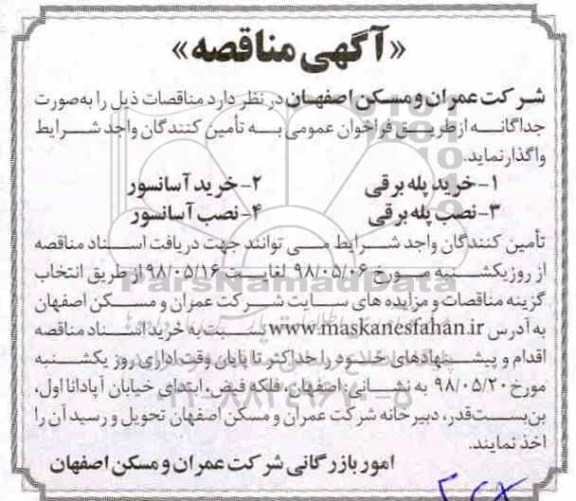 «آگهی مناقصه»
شرکت عمران و مسکن اصفهان در نظر دارد مناقصات ذیل را به‌صورت
جداگانه از طریق فراخوان عمومی به تأمین کنندگان واجد شرایط
واگذار نماید.
۱- خرید پله برقی ۲- خرید آسانسور
۳- نصب پله برقی ۴- نصب آسانسور
تأمین کنندگان واجد شرایط می توانند جهت دریافت اسناد مناقصه
از روز یکشنبه مورخ ۹۸/۰۵/۰۶ لغایت ۹۸/۰۵/۱۶ از طریق انتخاب
گزینه مناقصات و مزایده های سایت شرکت عمران و مسکن اصفهان
به آدرس www.maskanesfahan.ir نسبت به خرید اسناد مناقصه
اقدام و پیشنهادهای خود را حداکثر تا پایان وقت اداری روز یکشنبه
مورخ ۹۸/۰۵/۲۰ به نشانی: اصفهان، فلکه فیض، ابتدای خیابان آپادانا اول،
بن‌بست قدر، دبیرخانه شرکت عمران و مسکن اصفهان تحویل و رسید آن را
اخذ نمایند.
امور بازرگانی شرکت عمران و مسکن اصفهان
ParsNamadData
۰۲۱-۸۸۳۴۹۶۷۰-۵